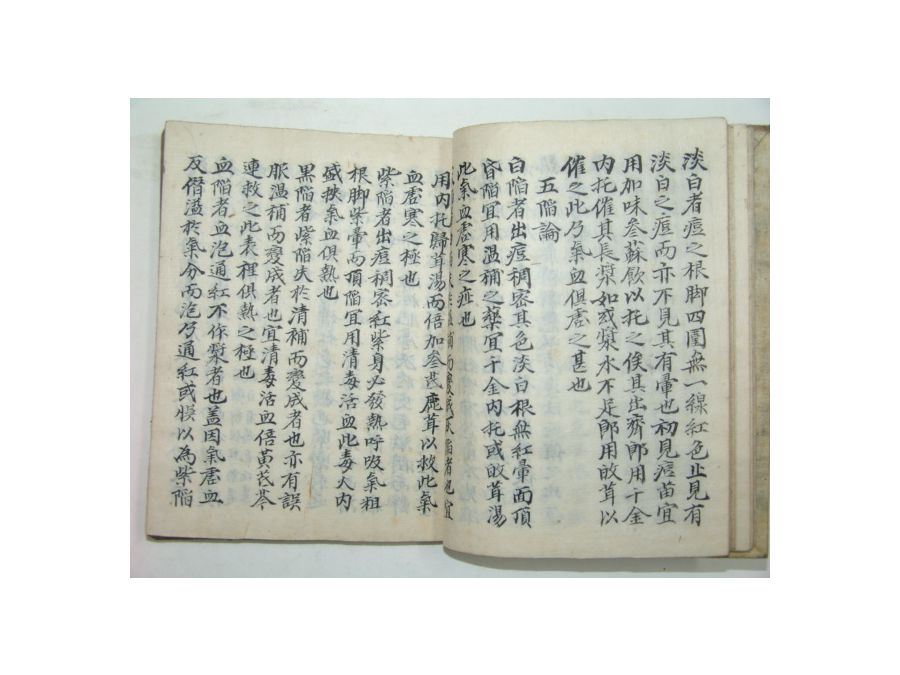 淡白者痘之根脚四圍無一線紅色止見有
淡白之痘而亦不見其有暈也初見痘苗宜
用加味參蘇飲以托之俟其出齊郎用千金
内托催其長漿如或漿水不足郎用故茸以
催之此乃氣血俱虛之甚也
五陷論
白陷者出痘稠密其色淡白根無紅暈而頂
昏陷宜用溫補之藥宜千金内托或故茸湯
此氣血虛寒之症也
補而變成灰陷者也宜
用内托歸茸湯而倍加參芪鹿茸以救此氣
血虛寒之極也
紫陷者出痘稠密紅紫身必發熱呼吸氣粗
根脚紫暈而頂陷宜用清毒活血此毒火内
盛挾氣血俱熱也
黑陷者紫陷失於清補而變成者也亦有誤
服溫補而變成者也宜清毒活血倍黄芪芩
連救之此表裡俱熱之極也
血陷者血泡通紅不作漿者也盖因氣虛血
反僭溢於氣分而泡乃通紅或悮以為紫陷